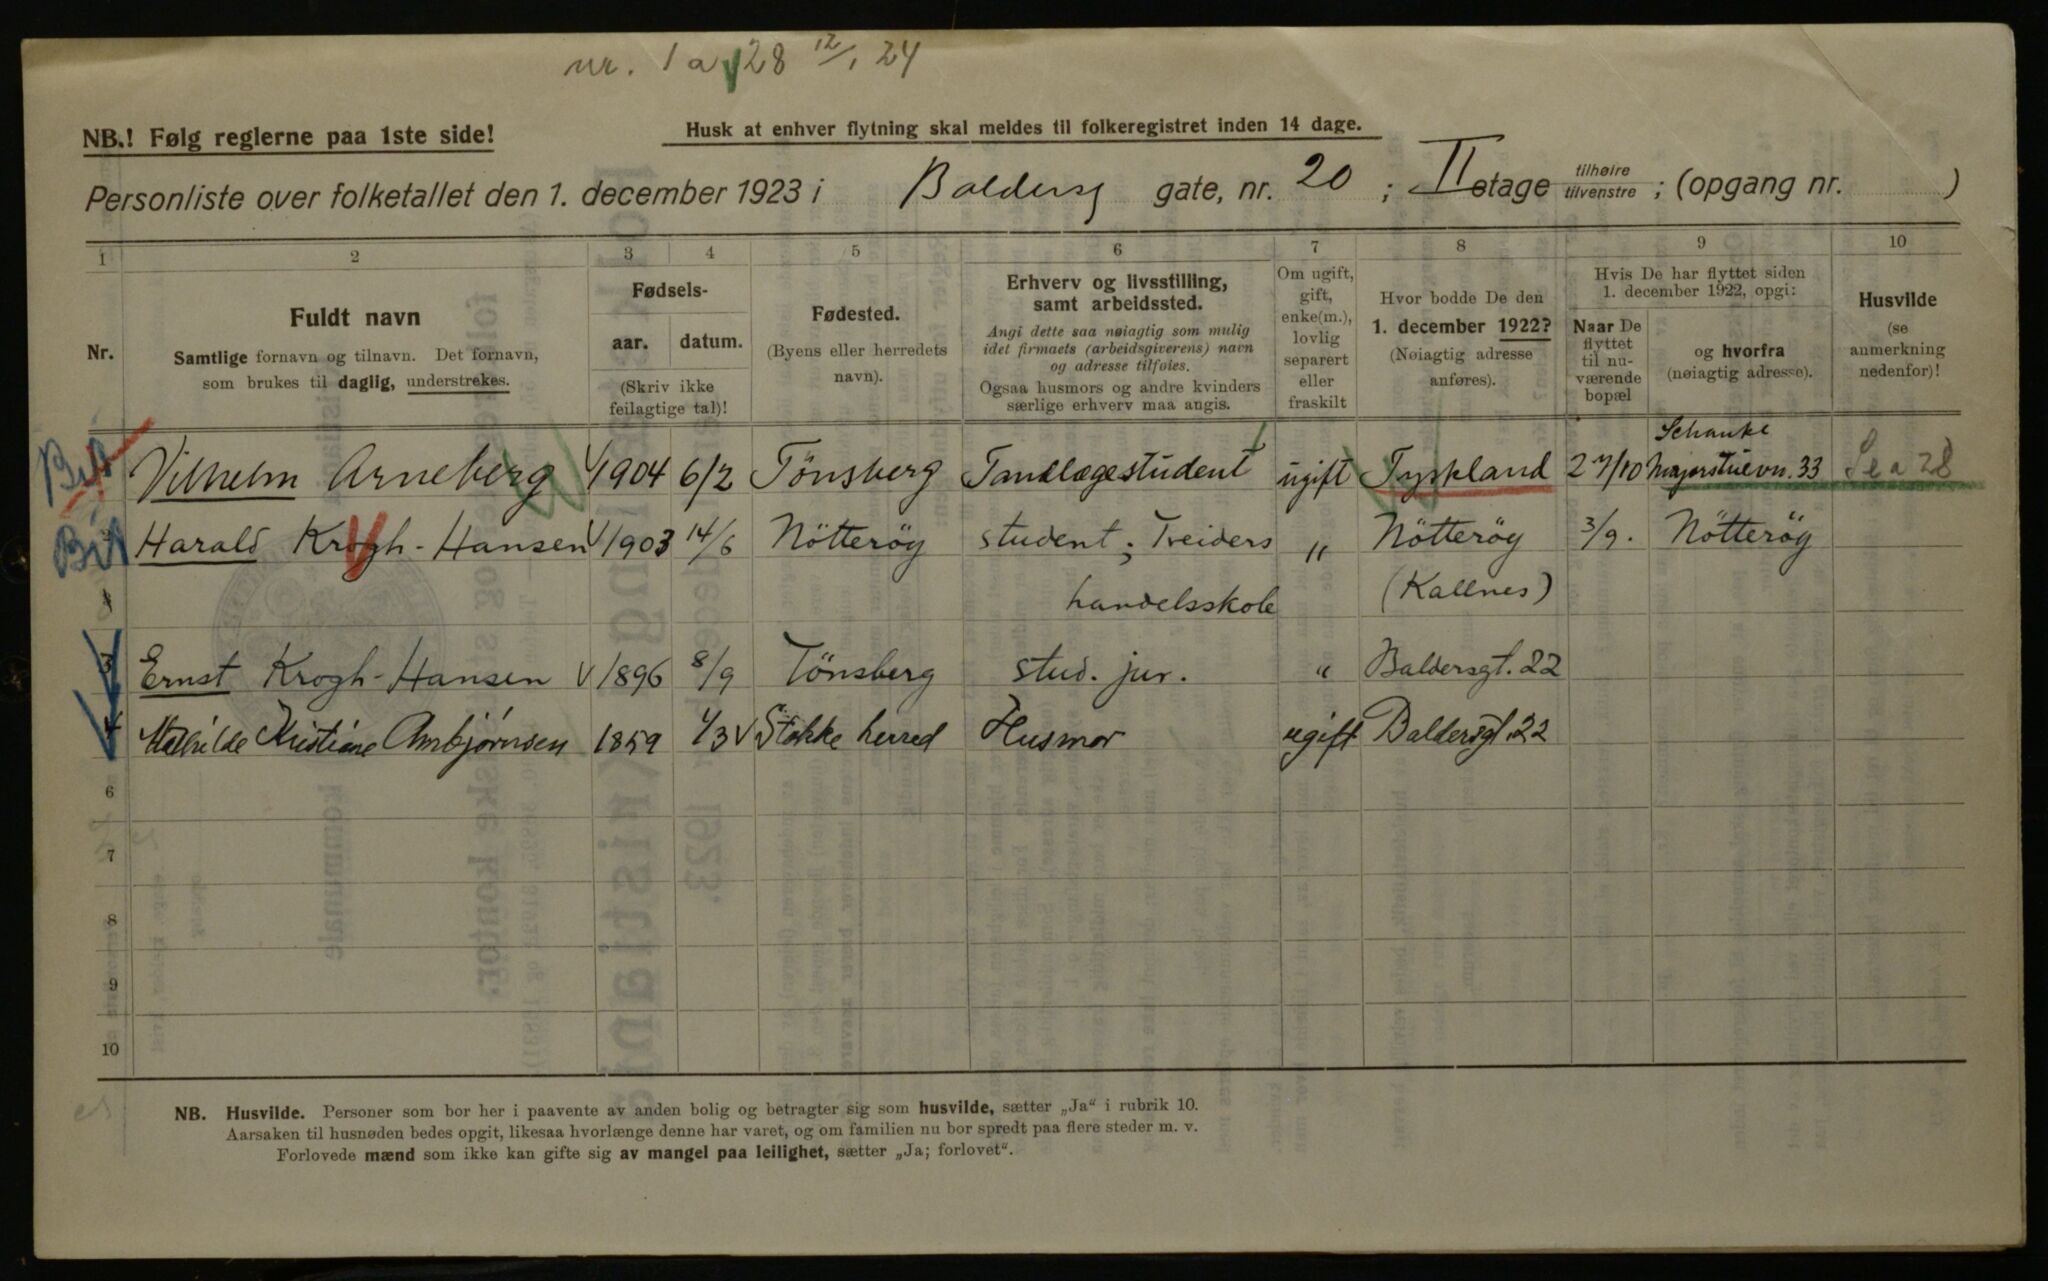 nr. 1 a 28 12/1 24
NB.! Følg reglerne paa 1ste side!
Husk at enhver flytning skal meldes til folkeregistret inden 14 dage.
Personliste over folketallet den 1. december 1923 i Baldersg gate, nr. 20 ; II etage tilhøire tilvenstre ; (opgang nr. )
1 2 3 4 5 6 7 8 9 10
Nr.
Fuldt navn
Samtlige fornavn og tilnavn. Det fornavn,
som brukes til daglig, understrekes.
Fødsels-
aar. datum.
(Skriv ikke
feilagtige tal)!
Fødested.
(Byens eller herredets
navn).
Erhverv og livsstilling,
samt arbeidssted.
Angi dette saa nøiagtig som mulig
idet firmaets (arbeidsgiverens) navn
og adresse tilføies.
Ogsaa husmors og andre kvinders
særlige erhverv maa angis.
Om ugift,
gift,
enke(m.),
lovlig
separert
eller
fraskilt
Hvor bodde De den
1. december 1922?
(Nøiagtig adresse
anføres).
Hvis De har flyttet siden
1. december 1922, opgi:
Naar De
flyttet
til nu-
værende
bopæl
og hvorfra
(nøiagtig adresse).
Husvilde
(se
anmerkning
nedenfor)!
Schanke
Vilhelm Arneberg 1904 6/2 Tønsberg Tandlægestudent ugift Tyskland 27/10 Majorstuevn. 33 Se a 28
Harald Krogh-Hansen 1903 14/6 Nötteröy student; Treiders " Nötteröy 3/9. Nötteröy
handelsskole (Kallnes)
3 Ernst Krogh-Hansen 1896 8/9 Tönsberg stud. jur. " Baldersgt. 22
4 Mathilde Kristiane Arnbjørnsen 1859 1/3 Stokke herred Husmor ugift Baldersgt. 22
6
7
8
9
10
NB. Husvilde. Personer som bor her i paavente av anden bolig og betragter sig som husvilde, sætter „Ja“ i rubrik 10.
Aarsaken til husnøden bedes opgit, likesaa hvorlænge denne har varet, og om familien nu bor spredt paa flere steder m. v.
Forlovede mænd som ikke kan gifte sig av mangel paa leilighet, sætter „Ja; forlovet“.